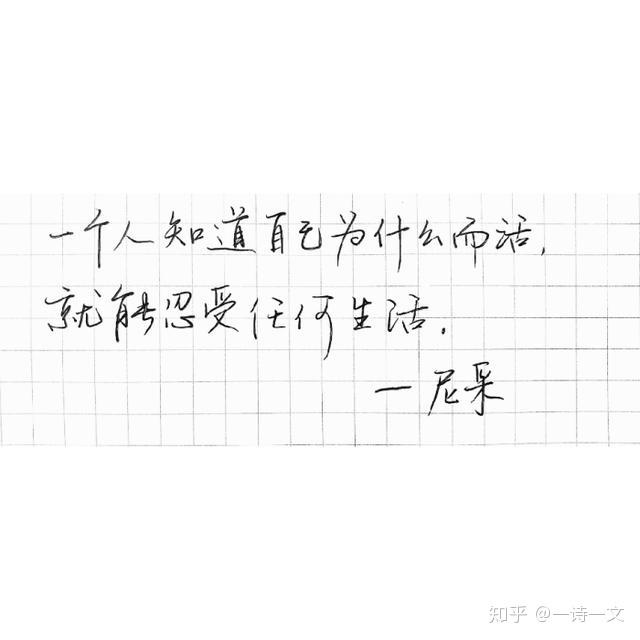 一个人知道自己为什么而活,
就能忍受任何生活.
一尼采
知乎 @一诗一文